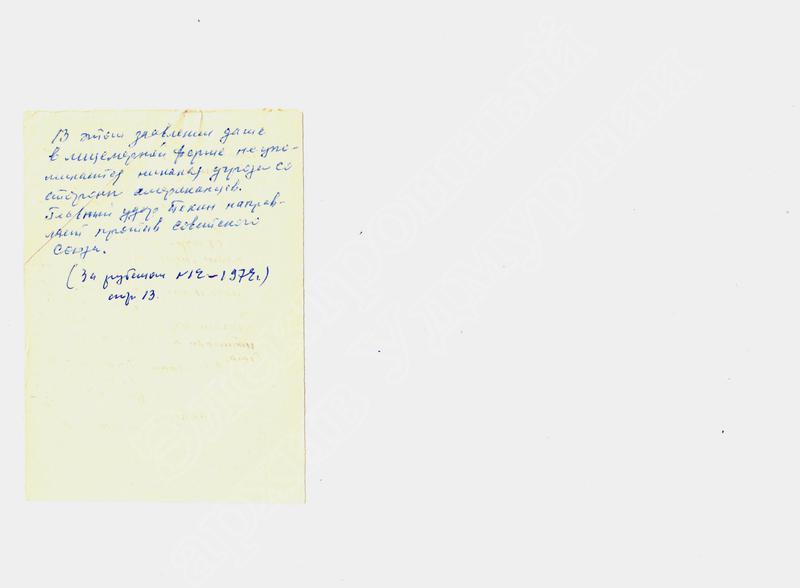 В этом заявлении даже
в лицемерной форме не упо-
минается никакая угроза со
стороны американцев.
Главный удар Пекин направ-
ляет против Советского
Союза.
(За рубежом №12-1972г.)
стр 13.